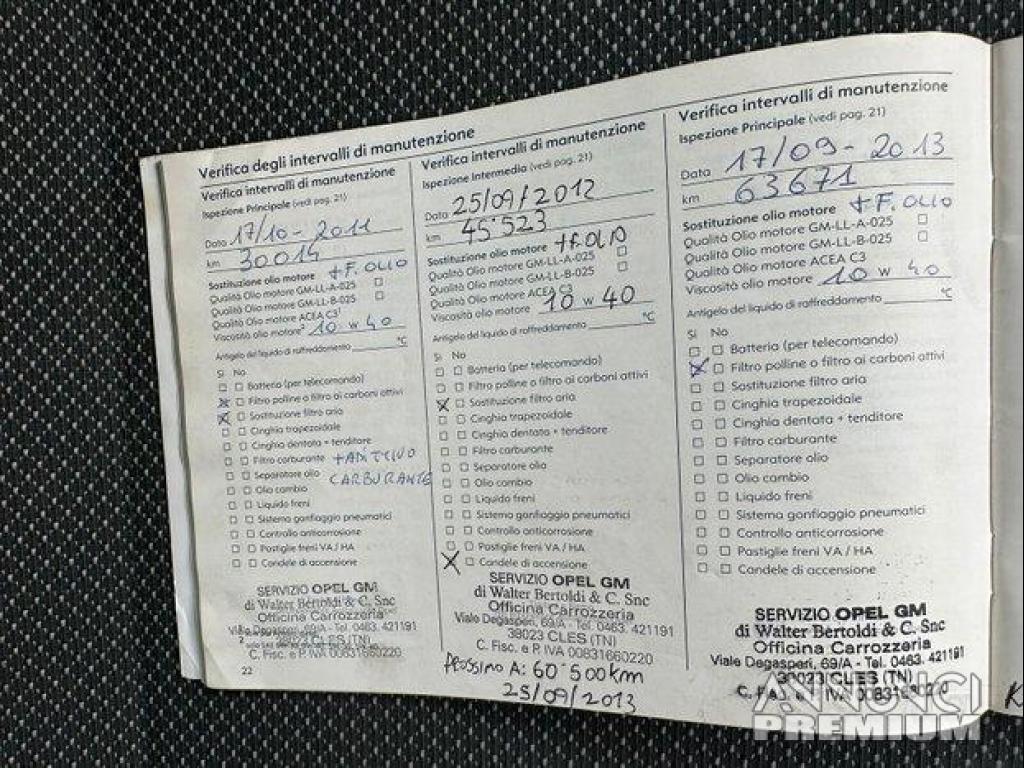 Verifica degli intervalli di manutenzione
Verifica intervalli di manutenzione
Ispezione Principale (vedi pag. 21)
Data 17/10-2011
km 30014
Sostituzione olio motore + F. OLIO
Qualità Olio motore GM-LL-A-025
Qualità Olio motore GM-LL-B-025
Qualità Olio motore ACEA C3¹
Viscosità olio motore² 10 w 40
Antigelo del liquido di raffreddamento °C
Si No
Batteria (per telecomando)
Filtro polline o filtro ai carboni attivi
Sostituzione filtro aria
Cinghia trapezoidale
Cinghia dentata + tenditore
Filtro carburante + ADITIVO
Separatore olio CARBURANTE
Olio cambio
Liquido freni
Sistema gonfiaggio pneumatici
Controllo anticorrosione
Pastiglie freni VA / HA
Candele di accensione
SERVIZIO OPEL GM
di Walter Bertoldi & C. Snc
Officina Carrozzeria
Viale Degasperi, 69/A - Tel. 0463. 421191
38023 CLES (TN)
C. Fisc. e P. IVA 00831660220
22
Verifica intervalli di manutenzione
Ispezione Intermedia (vedi pag. 21)
Data 25/09/2012
km 45'523
Sostituzione olio motore + F. OLIO
Qualità Olio motore GM-LL-A-025
Qualità Olio motore GM-LL-B-025
Qualità Olio motore ACEA C3
Viscosità olio motore 10 w 40
Antigelo del liquido di raffreddamento °C
Si No
Batteria (per telecomando)
Filtro polline o filtro ai carboni attivi
Sostituzione filtro aria
Cinghia trapezoidale
Cinghia dentata + tenditore
Filtro carburante
Separatore olio
Olio cambio
Liquido freni
Sistema gonfiaggio pneumatici
Controllo anticorrosione
Pastiglie freni VA / HA
Candele di accensione
SERVIZIO OPEL GM
di Walter Bertoldi & C. Snc
Officina Carrozzeria
Viale Degasperi, 69/A - Tel. 0463. 421191
38023 CLES (TN)
C. Fisc. e P. IVA 00831660220
PROSSIMO A: 60'500km
25/09/2013
Verifica intervalli di manutenzione
Ispezione Principale (vedi pag. 21)
Data 17/09-2013
km 63671
Sostituzione olio motore + F. OLIO
Qualità Olio motore GM-LL-A-025
Qualità Olio motore GM-LL-B-025
Qualità Olio motore ACEA C3
Viscosità olio motore 10 w 40
Antigelo del liquido di raffreddamento °C
Si No
Batteria (per telecomando)
Filtro polline o filtro ai carboni attivi
Sostituzione filtro aria
Cinghia trapezoidale
Cinghia dentata + tenditore
Filtro carburante
Separatore olio
Olio cambio
Liquido freni
Sistema gonfiaggio pneumatici
Controllo anticorrosione
Pastiglie freni VA / HA
Candele di accensione
SERVIZIO OPEL GM
di Walter Bertoldi & C. Snc
Officina Carrozzeria
Viale Degasperi, 69/A - Tel. 0463. 421191
38023 CLES (TN)
C. Fisc. e P. IVA 00831660220
ANNUNCI
PREMIUM